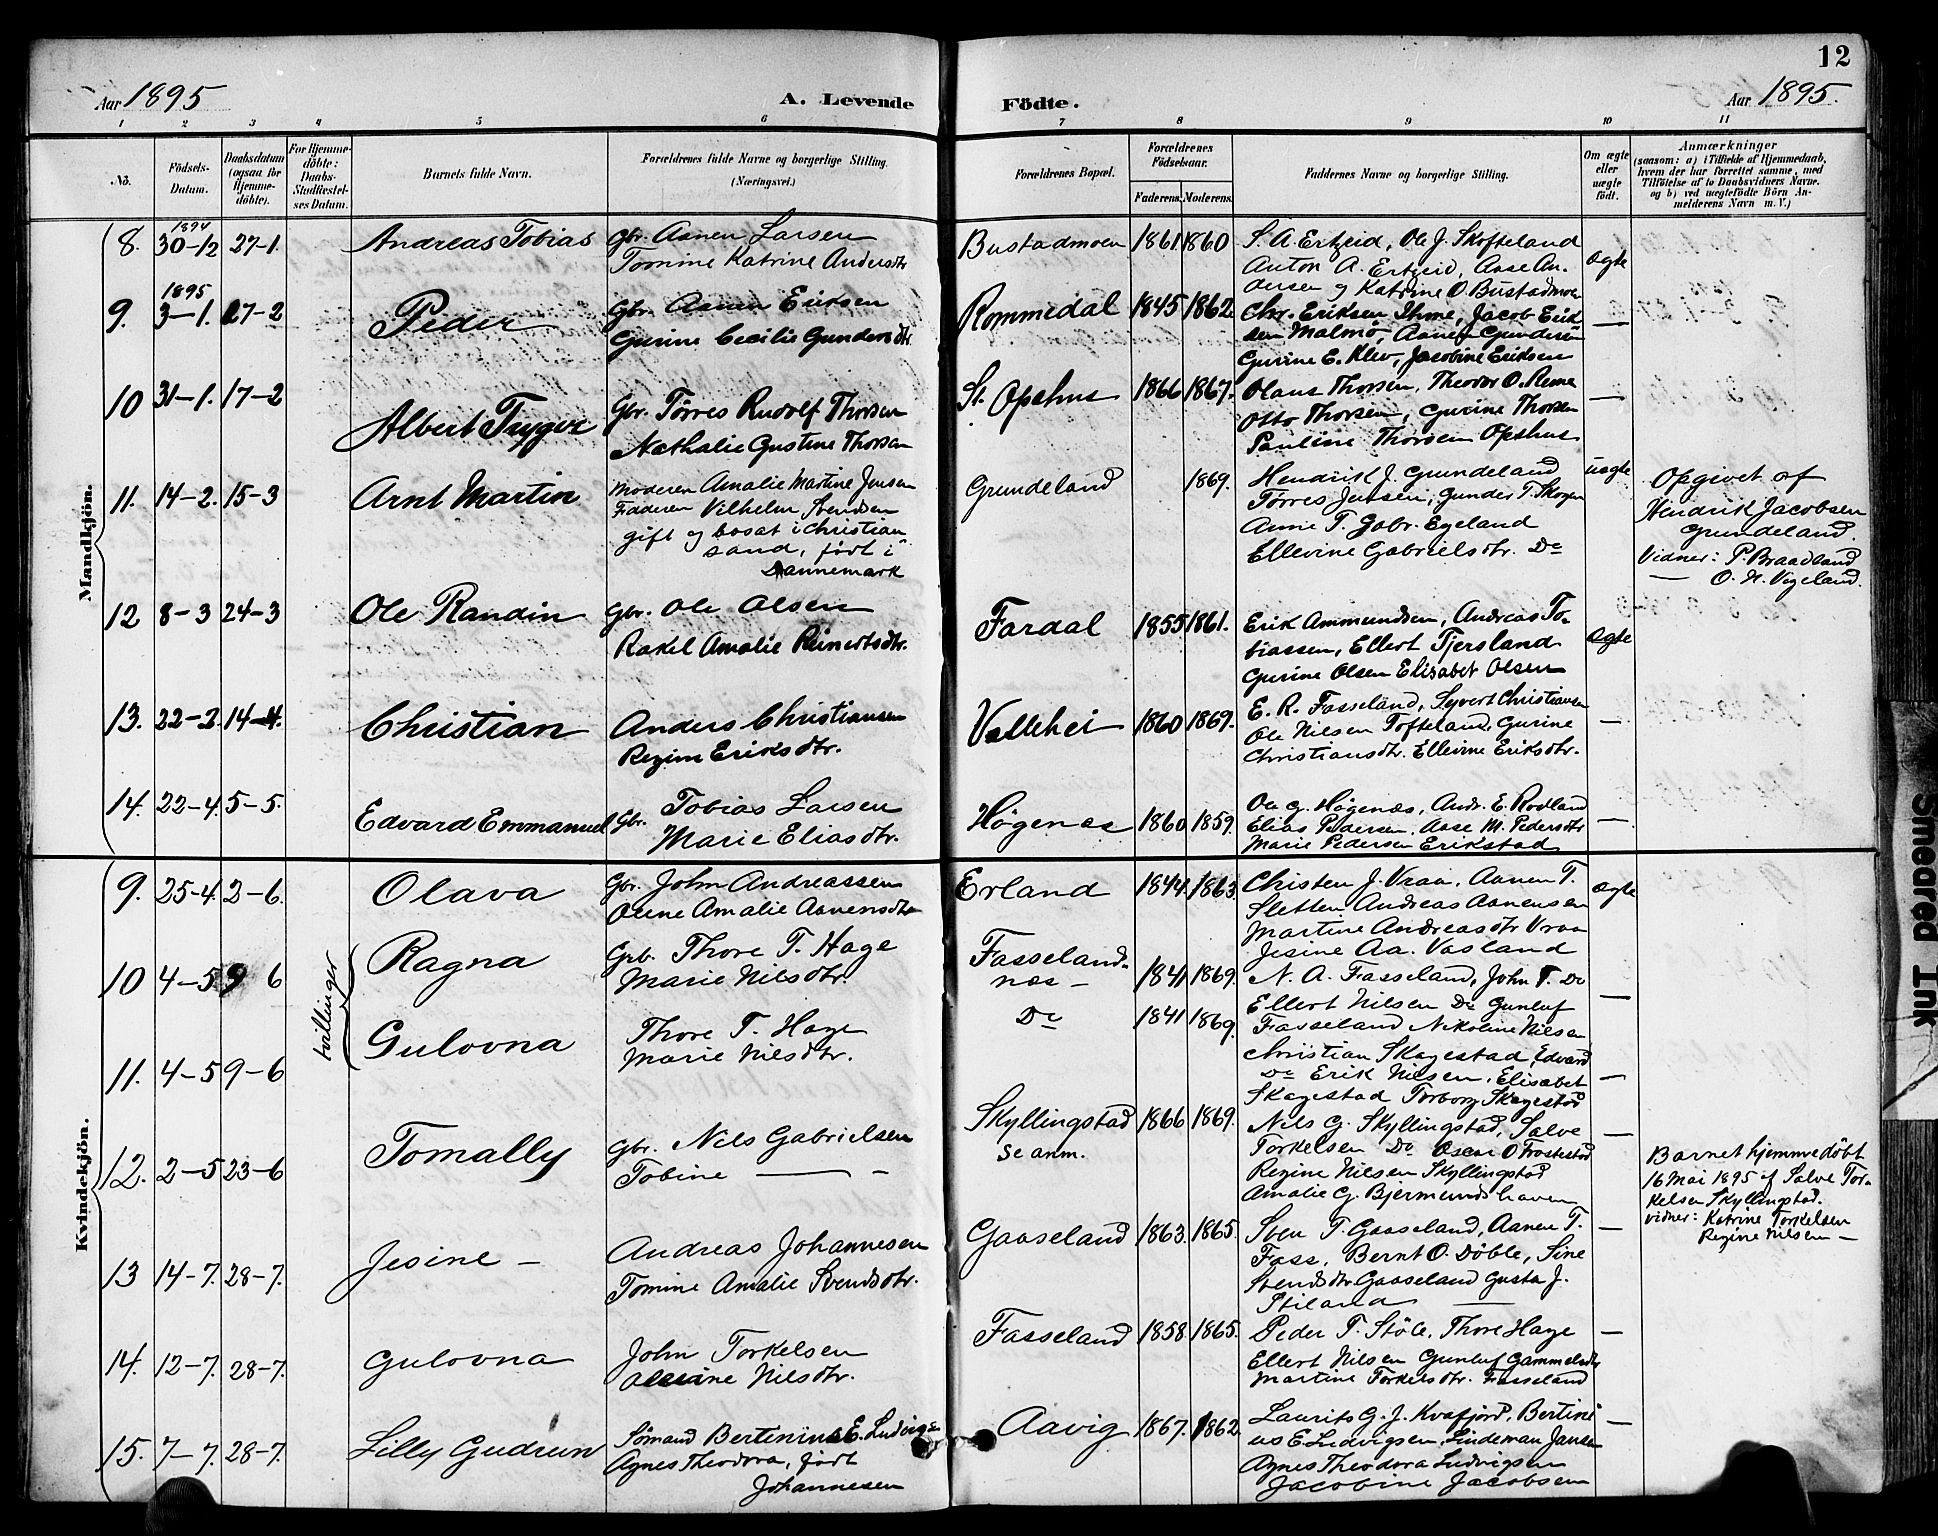 12
Aar 1895
A. Levende
Födte.
Aar 1895.
1 2 3 4 5 6 7 8 9 10 11
No.
Födsels-
Datum.
Daabsdatum
(ogsaa for
Hjemme-
döbte).
For Hjemme-
döbte:
Daabs-
Stadfæstel-
ses Datum.
Barnets fulde Navn.
Forældrenes fulde Navne og borgerlige Stilling.
(Næringsvei.)
Forældrenes Bopæl.
Forældrenes
Födselsaar.
Faderens.
Moderens.
Faddernes Navne og borgerlige Stilling.
Om ægte
eller
uægte
født.
Anmærkninger
(saasom: a) i Tilfælde af Hjemmedaab,
hvem der har forrettet samme, med
Tilföielse af to Daabsvidners Navne,
og b) ved uægtefödte Börn An-
melderens Navn m. V.)
Mandkjön.
1894
8. 30-12 27-1. Andreas Tobias
Gbr. Aanen Larsen
Tomine Katrine Andersdtr
Bustadmoen 1861. 1860
S. A. Ertzeid, Ole J. Skofteland
Anton A. Ertzeid, Aase An-
dersen og Katrine O. Bustadmoen
ægte
1895
9. 3-1. 27-2 Peder
Gbr. Aanen Eriksen
Gurine Cecilie Gundersdtr.
Rommedal 1845 1862
Chr. Eriksen Ihme, Jacob Erik
sen Malmö, Aanen Gundersen
Gurine E. Klev, Jacobine Eriksen
—
10 31-1. 17-2 Albert Trygve
Gbr. Törres Rudolf Thorsen
Nathalie Gustine Thorsen
St. Opshus 1866 1867.
Olaus Thorsen, Theodor O. Reme
Otto Thorsen, Gurine Thorsen
Pauline Thorsen Opshus
—
11. 14-2. 15-3 Arnt Martin
Moderen Amalie Martine Jensen
Faderen Vilhelm Svendsen
gift og bosat i Christian
sand, født i
Dannemark
Grundeland 1869.
Hendrik J. Grundeland
Törres Jensen, Gunder T. Skogen
Anne T. Gabr. Egeland
Ellevine Gabrielsdtr. Do
uægte
Opgivet af
Hendrik Jacobsen
Grundeland.
Vidner: P. Braadland
— O. N. Vigeland.
12 8-3 24-3 Ole Randin
Gbr. Ole Olsen
Rakel Amalie Reinertsdtr.
Fardal 1855 1861.
Erik Ammundsen, Andreas To-
biassen, Ellert Tjersland
Gurine Olsen Elisabet Olsen
ægte
13. 22-3. 14-4. Christian
Anders Christiansen
Regine Eriksdtr.
Vallehei 1860 1869.
E. R. Fasseland, Syvert Christiansen
Ole Nilsen Tofteland, Gurine
Christiansdtr. Ellevine Eriksdtr.
—
14. 22-4. 5-5. Edvard Emmanuel
Gbr. Tobias Larsen
Marie Eliasdtr.
Högenæs 1860 1859.
G. Högenæs, Andr. E. Rodland
Elias Pedersen, Aase M. Pedersdtr
Marie Pedersen Erikstad
—
Kvindekjön.
9. 25-4. 2-6. Olava
Gbr. John Andreassen
Amalie Aanensdtr
Erland 1844. 1863.
Christen J. Vraa, Aanen T.
Sletten Andreas Aanensen
Martine Andreasdtr Vraa
Jesine Aa. Vasland
ægte
tvillinger
10 4-5 9 6 Ragna
Grb. Thore T. Hage
Marie Nilsdtr.
Fasseland-
næs — 1841 1869.
N. A. Fasseland, John T. Do
Ellert Nilsen Do Gunluf
Fasseland Nikoline Nilsen
—
11. 4-5 9-6 Gulovna
Thore T. Hage
Marie Nilsdtr.
Do 1841 1869.
Christian Skagestad, Edvard
Do Erik Nilsen, Elisabet
Skagestad Torborg Skagestad
—
12. 2-5 23-6 Tomally
Gbr. Nils Gabrielsen
Tobine —
Skyllingstad 1866 1869.
se anm.
Nils G. Skyllingstad, Salve
Torkelsen Do Oscar O Frostestad
Regine Nilsen Skyllingstad
Amalie G. Bjermundshaven
—
Barnet hjemmedøbt
16 Mai 1895 af Salve Tor-
kelsen Skyllingstad.
vidner: Katrine Torkelsen
Regine Nilsen —
13 14-7. 28-7. Jesine —
Andreas Johannesen
Tomine Amalie Svendsdtr.
Gaaseland 1863. 1865.
Sven T. Gaaseland, Aanen T.
Foss, Bernt O. Döble, Sine
Svendsdtr Gaaseland Gusta J.
Stiland —
—
14. 12-7. 28-7. Gulovna
John Torkelsen
Nilsdtr.
Fasseland 1858. 1865.
Peder T. Stöle, Thore Hage
Ellert Nilsen Gunluf Gammelsdtr
Martine Torkelsdtr. Fasseland
—
15. 7-7. 28-7. Lilly Gudrun
Sömand Bertinius E. Ludvigs
Agnes Theodora, født
Johannesen
Aavig 1867. 1862.
Laurits G. J. Kvafjord, Bertini
us E. Ludvigsen, Lindeman Jansen
Agnes Theodora Ludvigsen
Jacobine Jacobsen
—
Smeared Ink